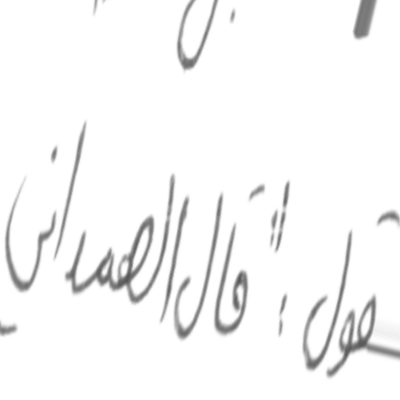 قول : " قال الهمداني